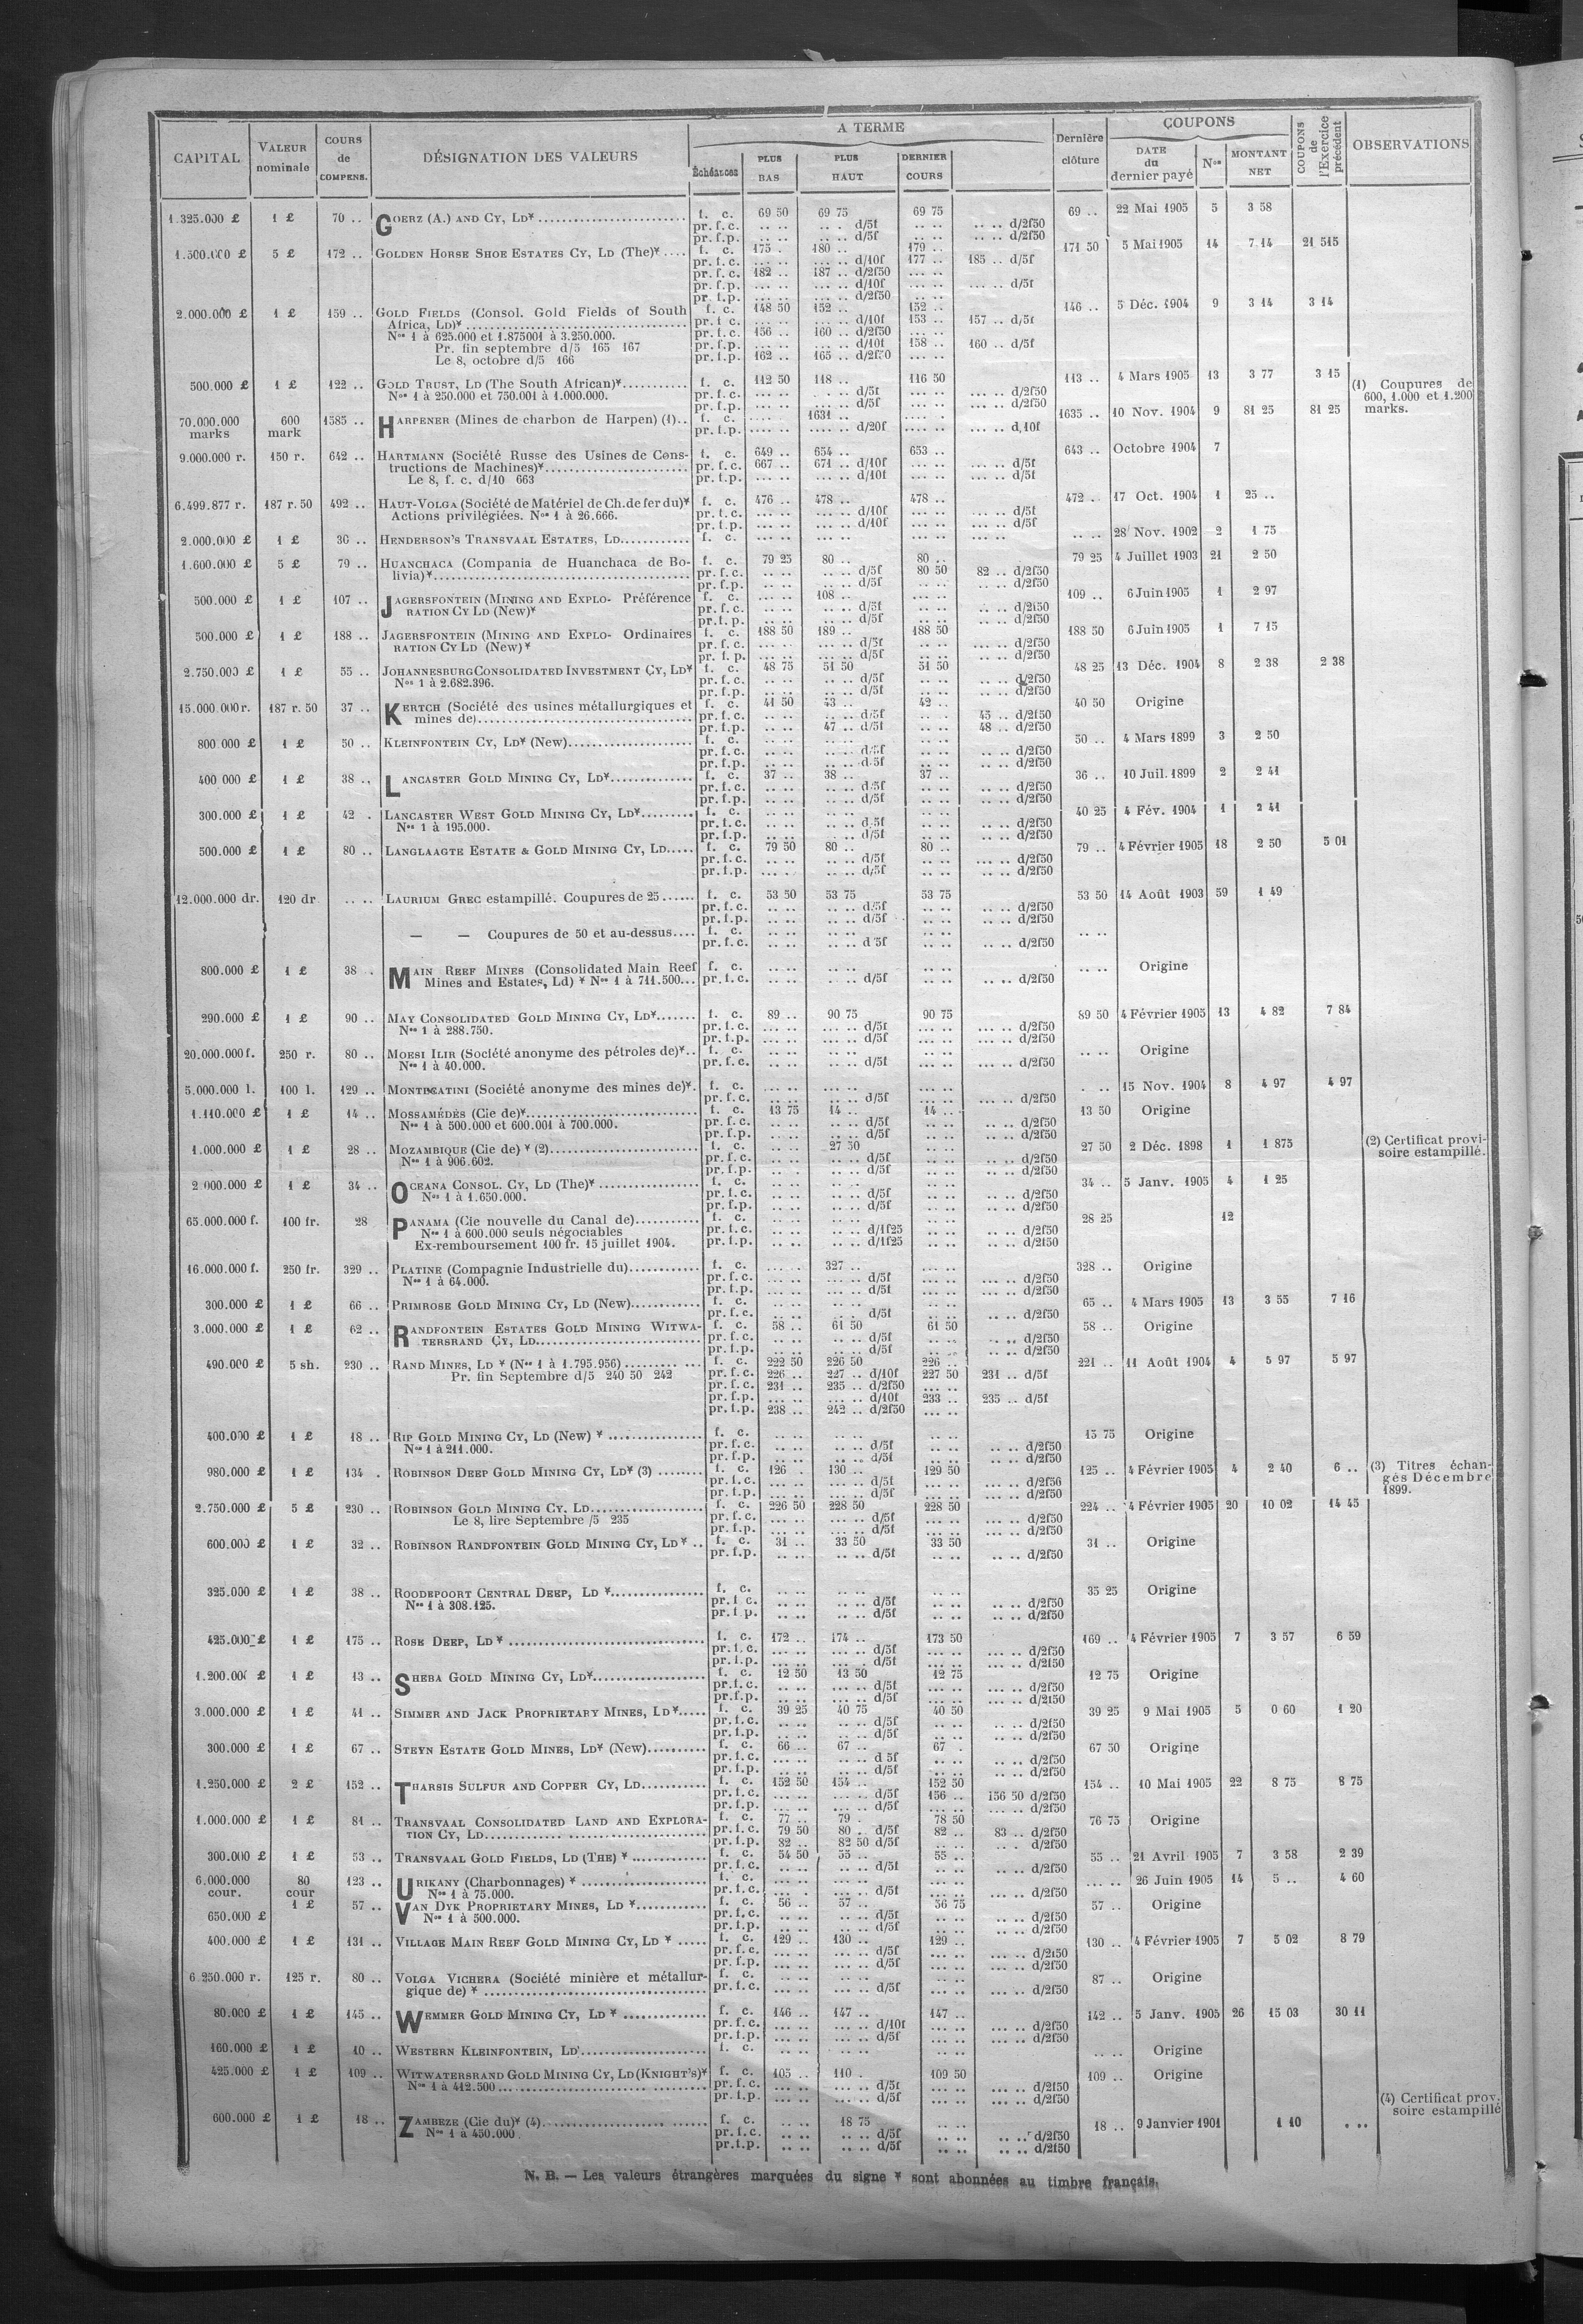 CAPITAL VALEUR nominale COURS de COMPENS. DÉSIGNATION DES VALEURS A TERME Échéances PLUS BAS PLUS HAUT DERNIER COURS Dernière clôture COUPONS DATE du dernier payé Nos MONTANT NET COUPONS de l'Exercice précédent OBSERVATIONS
1.325.000 £ 1 £ 70 .. GOERZ (A.) AND CY, LD¥ f. c. 69 50 69 75 69 75 69 .. 22 Mai 1905 5 3 58
pr. f. c. .. .. .. . d/5f .. .. .. .. d/2f50
pr. f. p. .. .. .. .. d/5f .. .. .. .. d/2f50
1.500.000 £ 5 £ 172 .. GOLDEN HORSE SHOE ESTATES CY, LD (The)¥ f. c. 175 . 180 .. 179 .. 171 50 5 Mai 1905 14 7 14 21 515
pr. f. c. ... .. ... .. d/10f 177 .. 185 .. d/5f
pr. f. c. 182 .. 187 .. d/2f50 ... ..
pr. f. p. ... .. ... .. d/10f ... .. ... .. d/5f
pr. f. p. ... .. ... .. d/2f50 .. ..
2.000.000 £ 1 £ 159 .. GOLD FIELDS (Consol. Gold Fields of South f. c. 148 50 152 .. 152 .. 146 .. 5 Déc. 1904 9 3 14 3 14
Africa, LD)¥ pr. f. c. ... .. ... .. d/10f 153 .. 157 .. d/5f
Nos 1 à 625.000 et 1.875001 à 3.250.000. pr. f. c. 156 .. 160 .. d/2f50 ... ..
Pr. fin septembre d/5 165 167 pr. f. p. ... .. ... .. d/10f 158 .. 160 .. d/5f
Le 8, octobre d/5 166 pr. f. p. 162 .. 165 .. d/2f50 ... ..
500.000 £ 1 £ 122 .. GOLD TRUST, LD (The South African)¥ f. c. 112 50 118 .. 116 50 113 .. 4 Mars 1905 13 3 77 3 15 (1) Coupures de
Nos 1 à 250.000 et 750.001 à 1.000.000. pr. f. c. ... .. ... .. d/5f ... .. ... .. d/2f50 600, 1.000 et 1.200
pr. f. p. ... .. ... .. d/5f ... .. ... .. d/2f50 marks.
70.000.000 marks 600 mark 1585 .. HARPENER (Mines de charbon de Harpen) (1).. f. c. .... . 1631 .. .... . 1635 .. 10 Nov. 1904 9 81 25 81 25
pr. f. p. .... .. .... .. d/20f .... .. ... .. d/10f
9.000.000 r. 150 r. 642 .. HARTMANN (Société Russe des Usines de Cons- f. c. 649 .. 654 .. 653 .. 643 .. Octobre 1904 7
tructions de Machines)¥ pr. f. c. 667 .. 671 .. d/10f ... .. ... .. d/5f
Le 8, f. c. d/10 663 pr. f. p. ... .. ... .. d/10f ... .. ... .. d/5f
6.499.877 r. 187 r. 50 492 .. HAUT-VOLGA (Société de Matériel de Ch. de fer du)¥ f. c. 476 .. 478 .. 478 .. 472 .. 17 Oct. 1904 1 25 ..
Actions privilégiées. Nos 1 à 26.666. pr. f. c. ... .. ... .. d/10f ... .. ... .. d/5f
pr. f. p. ... .. ... .. d/10f ... .. ... .. d/5f
2.000.000 £ 1 £ 30 .. HENDERSON'S TRANSVAAL ESTATES, LD f. c. ... .. ... .. ... .. ... .. .. .. 28 Nov. 1902 2 1 75
1.600.000 £ 5 £ 79 .. HUANCHACA (Compania de Huanchaca de Bo- f. c. 79 25 80 .. 80 .. 79 25 4 Juillet 1903 21 2 50
livia)¥ pr. f. c. .. .. .. .. d/5f 80 50 82 .. d/2f50
pr. f. p. .. .. .. .. d/5f .. .. .. .. d/2f50
500.000 £ 1 £ 107 .. JAGERSFONTEIN (MINING AND EXPLO- Préférence f. c. ... .. 108 .. ... .. 109 .. 6 Juin 1905 1 2 97
RATION CY LD (New)¥ pr. f. c. .. .. .. .. d/5f .. .. .. .. d/2f50
pr. f. p. .. .. .. .. d/5f .. .. .. .. d/2f50
500.000 £ 1 £ 188 .. JAGERSFONTEIN (MINING AND EXPLO- Ordinaires f. c. 188 50 189 .. 188 50 188 50 6 Juin 1905 1 7 15
RATION CY LD (New)¥ pr. f. c. ... .. ... .. d/5f .. .. ... .. d/2f50
pr. f. p. ... .. ... .. d/5f .. .. ... .. d/2f50
2.750.000 £ 1 £ 55 .. JOHANNESBURG CONSOLIDATED INVESTMENT CY, LD¥ f. c. 48 75 51 50 51 50 48 25 13 Déc. 1904 8 2 38 2 38
Nos 1 à 2.682.396. pr. f. c. .. .. .. .. d/5f .. .. .. .. d/2f50
pr. f. p. .. .. .. .. d/5f .. .. .. .. d/2f50
15.000.000 r. 187 r. 50 37 .. KERTCH (Société des usines métallurgiques et f. c. 41 50 43 .. 42 .. 40 50 Origine
mines de) pr. f. c. .. .. .. .. d/5f .. .. 45 .. d/2f50
pr. f. p. .. .. 47 .. d/5f .. .. 48 .. d/2f50
800 000 £ 1 £ 50 .. KLEINFONTEIN CY, LD¥ (New) f. c. .. .. .. .. .. .. 50 .. 4 Mars 1899 3 2 50
pr. f. c. .. .. .. .. d/5f .. .. .. .. d/2f50
pr. f. p. .. .. .. .. d/5f .. .. .. .. d/2f50
400 000 £ 1 £ 38 .. LANCASTER GOLD MINING CY, LD¥ f. c. 37 .. 38 .. 37 .. 36 .. 10 Juil. 1899 2 2 41
pr. f. c. .. .. .. .. d/5f .. .. .. .. d/2f50
pr. f. p. .. .. .. .. d/5f .. .. .. .. d/2f50
300.000 £ 1 £ 42 . LANCASTER WEST GOLD MINING CY, LD¥ f. c. .. .. .. .. .. .. 40 25 4 Fév. 1904 1 2 41
Nos 1 à 195.000. pr. f. c. .. .. .. .. d/5f .. .. .. .. d/2f50
pr. f. p. .. .. .. .. d/5f .. .. .. .. d/2f50
500.000 £ 1 £ 80 .. LANGLAAGTE ESTATE & GOLD MINING CY, LD f. c. 79 50 80 .. 80 .. 79 .. 4 Février 1905 18 2 50 5 01
pr. f. c. .. .. .. .. d/5f .. .. ... .. d/2f50
pr. f. p. ... .. .. .. d/5f .. .. .. .. d/2f50
12.000.000 dr. 120 dr .. .. LAURIUM GREC estampillé. Coupures de 25 f. c. 53 50 53 75 53 75 53 50 14 Août 1903 59 1 49
pr. f. c. .. .. .. .. d/5f .. .. .. .. d/2f50
pr. f. p. .. .. .. .. d/5f .. .. .. .. d/2f50
— — Coupures de 50 et au-dessus.... f. c. .. .. .. .. .. .. .. ..
pr. f. c. .. .. .. .. d/5f .. .. .. .. d/2f50
800.000 £ 1 £ 38 . MAIN REEF MINES (Consolidated Main Reef f. c. .. .. .. .. .. .. .. .. Origine
Mines and Estates, Ld) ¥ Nos 1 à 711.500... pr. f. c. .. .. .. .. d/5f .. .. .. .. d/2f50
290.000 £ 1 £ 90 .. MAY CONSOLIDATED GOLD MINING CY, LD¥ f. c. 89 .. 90 75 90 75 89 50 4 Février 1905 13 4 82 7 84
Nos 1 à 288.750. pr. f. c. ... .. ... .. d/5f ... .. ... .. d/2f50
pr. f. p. ... .. ... .. d/5f ... .. ... .. d/2f50
20.000.000 f. 250 r. 80 .. MOESI ILIR (Société anonyme des pétroles de)¥.. f. c. .. .. .. .. .. .. .. .. Origine
Nos 1 à 40.000. pr. f. c. .. .. .. .. d/5f .. .. ... .. d/2f50
5.000.000 l. 100 l. 129 .. MONTECATINI (Société anonyme des mines de)¥. f. c. ... .. ... .. ... .. . .. 15 Nov. 1904 8 4 97 4 97
pr. f. c. ... .. ... .. d/5f ... .. ... .. d/2f50
1.110.000 £ 1 £ 14 .. MOSSAMÉDÈS (Cie de)¥ f. c. 13 75 14 .. 14 .. 13 50 Origine
Nos 1 à 500.000 et 600.001 à 700.000. pr. f. c. .. .. .. .. d/5f .. .. .. .. d/2f50
pr. f. p. .. .. .. .. d/5f .. .. .. .. d/2f50
1.000.000 £ 1 £ 28 .. MOZAMBIQUE (Cie de) ¥ (2) f. c. .. .. 27 50 .. .. 27 50 2 Déc. 1898 1 1 875 (2) Certificat provi-
Nos 1 à 906.602. pr. f. c. .. .. .. .. d/5f .. .. .. .. d/2f50 soire estampillé.
pr. f. p. .. .. .. .. d/5f .. .. .. .. d/2f50
2 000.000 £ 1 £ 34 .. OCEANA CONSOL. CY, LD (The)¥ f. c. .. .. .. .. .. .. 34 .. 5 Janv. 1905 4 1 25
Nos 1 à 1.650.000. pr. f. c. .. .. .. .. d/5f .. .. .. .. d/2f50
pr. f. p. .. .. .. .. d/5f .. .. .. .. d/2f50
65.000.000 f. 100 fr. 28 PANAMA (Cie nouvelle du Canal de) f. c. .. .. .. .. .. .. 28 25 12
Nos 1 à 600.000 seuls négociables pr. f. c. .. .. .. .. d/1f25 .. .. .. .. d/2f50
Ex-remboursement 100 fr. 15 juillet 1904. pr. f. p. .. .. .. .. d/1f25 .. .. .. .. d/2f50
16.000.000 f. 250 fr. 329 .. PLATINE (Compagnie Industrielle du) f. c. ... . 327 .. ... .. 328 .. Origine
Nos 1 à 64.000. pr. f. c. ... .. ... .. d/5f ... .. ... .. d/2f50
pr. f. p. ... .. ... .. d/5f ... .. ... .. d/2f50
300.000 £ 1 £ 66 .. PRIMROSE GOLD MINING CY, LD (New) f. c. .. .. .. .. .. .. 65 .. 4 Mars 1905 13 3 55 7 16
pr. f. c. .. .. .. . d/5f .. .. ... .. d/2f50
3.000.000 £ 1 £ 62 .. RANDFONTEIN ESTATES GOLD MINING WITWA- f. c. 58 .. 61 50 61 50 58 .. Origine
TERSRAND CY, LD pr. f. c. .. .. .. .. d/5f .. .. .. .. d/2f50
pr. f. p. .. .. .. .. d/5f .. .. .. .. d/2f50
490.000 £ 5 sh. 230 .. RAND MINES, LD ¥ (Nos 1 à 1.795.956) f. c. 222 50 226 50 226 .. 221 .. 11 Août 1904 4 5 97 5 97
Pr. fin Septembre d/5 240 50 242 pr. f. c. 226 .. 227 .. d/10f 227 50 231 .. d/5f
pr. f. c. 231 .. 235 .. d/2f50 ... ..
pr. f. p. ... .. ... .. d/10f 233 .. 235 .. d/5f
pr. f. p. 238 .. 242 .. d/2f50 ... ..
400.000 £ 1 £ 18 .. RIP GOLD MINING CY, LD (New) ¥ f. c. .. .. .. .. .. .. 15 75 Origine
Nos 1 à 211.000. pr. f. c. .. .. .. .. d/5f .. .. .. .. d/2f50
pr. f. p. .. .. .. .. d/5f .. .. .. .. d/2f50
980.000 £ 1 £ 134 . ROBINSON DEEP GOLD MINING CY, LD¥ (3) f. c. 126 . 130 .. 129 50 125 .. 4 Février 1905 4 2 40 6 .. (3) Titres échan-
pr. f. c. ... .. ... .. d/5f ... .. ... .. d/2f50 gés Décembre
pr. f. p. ... .. ... .. d/5f ... .. ... .. d/2f50 1899.
2.750.000 £ 5 £ 230 .. ROBINSON GOLD MINING CY, LD f. c. 226 50 228 50 228 50 224 .. 4 Février 1905 20 10 02 14 45
Le 8, lire Septembre /5 235 pr. f. c. ... .. ... .. d/5f ... .. ... .. d/2f50
pr. f. p. ... .. ... .. d/5f ... .. ... .. d/2f50
600.000 £ 1 £ 32 .. ROBINSON RANDFONTEIN GOLD MINING CY, LD ¥ .. f. c. 31 .. 33 50 33 50 31 .. Origine
pr. f. p. .. .. .. .. d/5f .. .. .. .. d/2f50
325.000 £ 1 £ 38 .. ROODEPOORT CENTRAL DEEP, LD ¥ f. c. .. .. .. .. .. .. 35 25 Origine
Nos 1 à 308.125. pr. f. c. .. .. .. .. d/5f .. .. .. .. d/2f50
pr. f. p. .. .. .. .. d/5f .. .. .. .. d/2f50
425.000 £ 1 £ 175 .. ROSE DEEP, LD ¥ f. c. 172 .. 174 .. 173 50 169 .. 4 Février 1905 7 3 57 6 59
pr. f. c. ... .. ... .. d/5f ... .. ... .. d/2f50
pr. f. p. ... .. ... . d/5f ... .. ... .. d/2f50
1.200.000 £ 1 £ 13 .. SHEBA GOLD MINING CY, LD¥ f. c. 12 50 13 50 12 75 12 75 Origine
pr. f. c. .. .. ... .. d/5f .. .. ... .. d/2f50
pr. f. p. .. .. ... .. d/5f .. .. ... .. d/2f50
3.000.000 £ 1 £ 41 .. SIMMER AND JACK PROPRIETARY MINES, LD¥ f. c. 39 25 40 75 40 50 39 25 9 Mai 1905 5 0 60 1 20
pr. f. c. .. .. .. .. d/5f .. .. .. .. d/2f50
pr. f. p. .. .. .. .. d/5f .. .. .. .. d/2f50
300.000 £ 1 £ 67 .. STEYN ESTATE GOLD MINES, LD¥ (New) f. c. 66 .. 67 .. 67 . 67 50 Origine
pr. f. c. .. .. .. .. d 5f .. .. .. .. d/2f50
pr. f. p. .. .. .. .. d/5f .. .. .. .. d/2f50
1.250.000 £ 2 £ 152 .. THARSIS SULFUR AND COPPER CY, LD f. c. 152 50 154 .. 152 50 154 .. 10 Mai 1905 22 8 75 8 75
pr. f. c. ... .. ... .. d/5f 156 .. 156 50 d/2f50
pr. f. p. ... .. ... .. d/5f ... .. ... .. d/2f50
1.000.000 £ 1 £ 81 .. TRANSVAAL CONSOLIDATED LAND AND EXPLORA- f. c. 77 .. 79 . 78 50 76 75 Origine
TION CY, LD pr. f. c. 79 50 80 . d/5f 82 .. 83 .. d/2f50
pr. f. p. 82 .. 82 50 d/5f .. .. .. . d/2f50
300.000 £ 1 £ 53 .. TRANSVAAL GOLD FIELDS, LD (THE) ¥ f. c. 54 50 55 .. 55 .. 55 .. 21 Avril 1905 7 3 58 2 39
pr. f. c. .. .. .. .. d/5f .. .. .. .. d/2f50
6.000.000 cour. 80 cour 123 .. URIKANY (Charbonnages) ¥ f. c. ... .. ... .. ... .. ... .. 26 Juin 1905 14 5 .. 4 60
Nos 1 à 75.000. pr. f. c. ... . ... .. d/5f ... .. ... .. d/2f50
650.000 £ 1 £ 57 .. VAN DYK PROPRIETARY MINES, LD ¥ f. c. 56 .. 57 .. 56 75 57 .. Origine
Nos 1 à 500.000. pr. f. c. .. .. .. .. d/5f .. .. .. .. d/2f50
pr. f. p. .. .. .. .. d/5f .. .. .. .. d/2f50
400.000 £ 1 £ 131 .. VILLAGE MAIN REEF GOLD MINING CY, LD ¥ f. c. 129 .. 130 .. 129 .. 130 .. 4 Février 1905 7 5 02 8 79
pr. f. c. ... .. ... .. d/5f ... .. ... .. d/2f50
pr. f. p. ... .. ... .. d/5f ... .. ... .. d/2f50
6.250.000 r. 125 r. 80 .. VOLGA VICHERA (Société minière et métallur- f. c. .. .. .. .. .. .. 87 .. Origine
gique de) ¥ pr. f. c. .. .. ... .. d/5f .. .. ... .. d/2f50
80.000 £ 1 £ 145 .. WEMMER GOLD MINING CY, LD ¥ f. c. 146 .. 147 .. 147 .. 142 .. 5 Janv. 1905 26 15 03 30 11
pr. f. c. ... .. ... .. d/10f ... .. ... .. d/2f50
pr. f. p. ... .. ... .. d/5f ... .. ... .. d/2f50
160.000 £ 1 £ 10 .. WESTERN KLEINFONTEIN, LD f. c. .. .. .. .. .. .. .. .. Origine
425.000 £ 1 £ 109 .. WITWATERSRAND GOLD MINING CY, LD (KNIGHT'S)¥ f. c. 105 .. 110 . 109 50 109 .. Origine
Nos 1 à 412.500 pr. f. c. ... .. ... .. d/5f ... .. ... .. d/2f50
pr. f. p. ... .. ... .. d/5f ... .. ... .. d/2f50
600.000 £ 1 £ 18 .. ZAMBEZE (Cie du)¥ (4) f. c. .. .. 18 75 .. .. 18 .. 9 Janvier 1901 1 10 . .. (4) Certificat prov.
Nos 1 à 450.000. pr. f. c. .. .. .. .. d/5f .. .. .. .. d/2f50 soire estampillé
pr. f. p. .. .. .. .. d/5f .. .. .. .. d/2f50
N. B. — Les valeurs étrangères marquées du signe ¥ sont abonnées au timbre français.